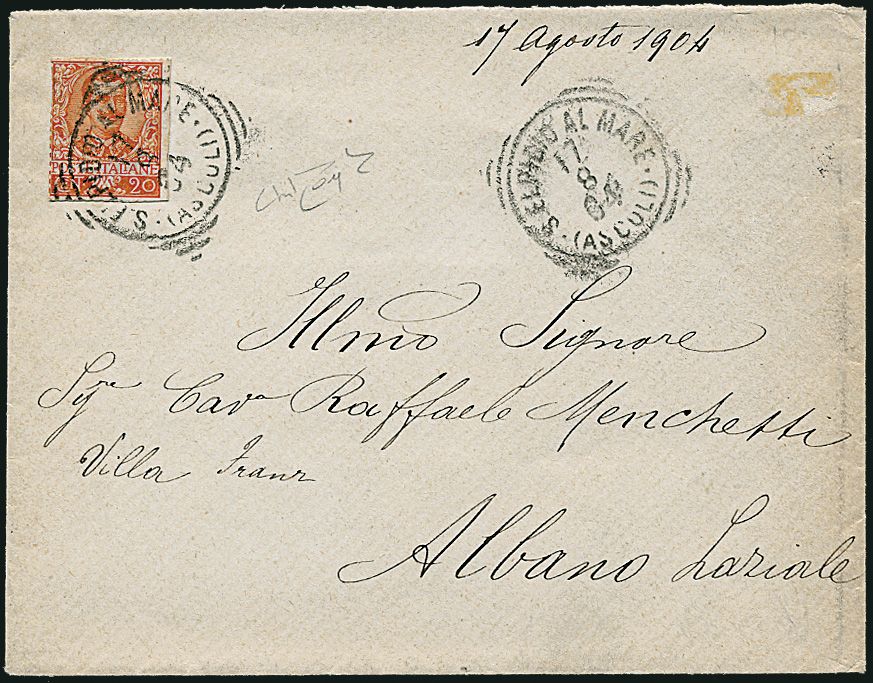 17 Agosto 1904
POSTE ITALIANE
20
S. ELPIDIO AL MARE · (ASCOLI) ·
17
8
04
S. ELPIDIO AL MARE · (ASCOLI) ·
17
8
04
Illmo Signore
Sigr Cavr Raffaele Menchetti
Villa Franz
Albano Laziale